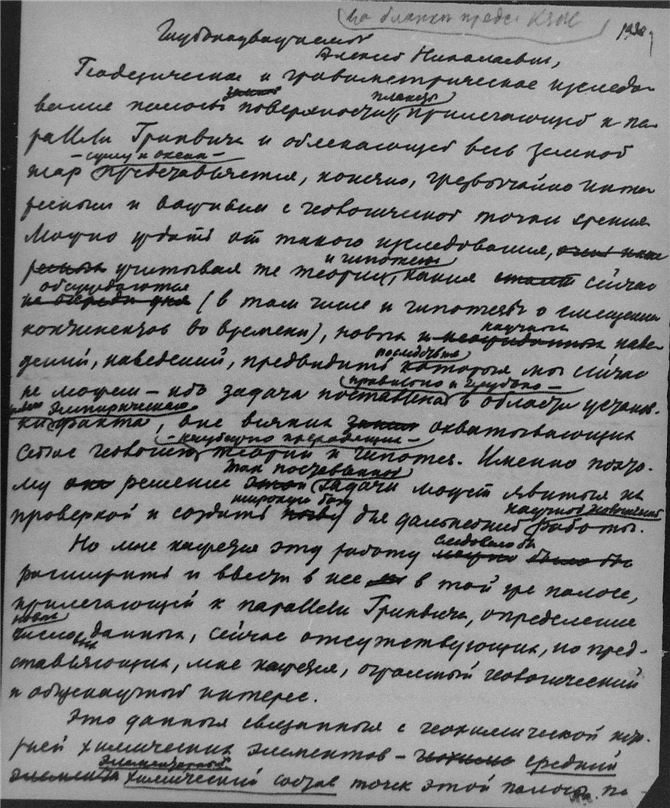 На бланке предс. КЕПС
193
Глубокоуважаемый
Алексей Николаевич,
Геодезическое и гравиметрическое исследо-
вание полосы поверхности планеты, прилегающей к па-
раллели Гринвича и облекающей весь земной
шар – сушу и океан – представляется, конечно, чрезвычайно инте-
ресным и важным с геологической точки зрения
Можно ждать от такого исследования,
учитывая те теории и гипотезы, какие сейчас
обсуждаются (в том числе и гипотезы о смещении
континентов во времени), новых и научных наве-
дений, наведений, предвидеть последствия которых мы сейчас
не можем – ибо задача поставлена правильно и глубоко – в области установ-
ки эмпирических факта, вне всяких охватывающих
сейчас геологию теорий и гипотез. Именно поэто-
му решение так поставленной задачи может явиться их
проверкой и создать широкую базу для дальнейшей научной работы.
Но мне кажется эту работу следовало бы
расширить и ввести в нее в той же полосе,
прилегающей к параллели Гринвича, определение
новых числовых данных, сейчас отсутствующих, но пред-
ставляющих, мне кажется, огромный геологический
и общенаучный интерес.
Это данные связанные с геохимической
химических элементов – средний
элементарный химический состав точек этой полосы. по-